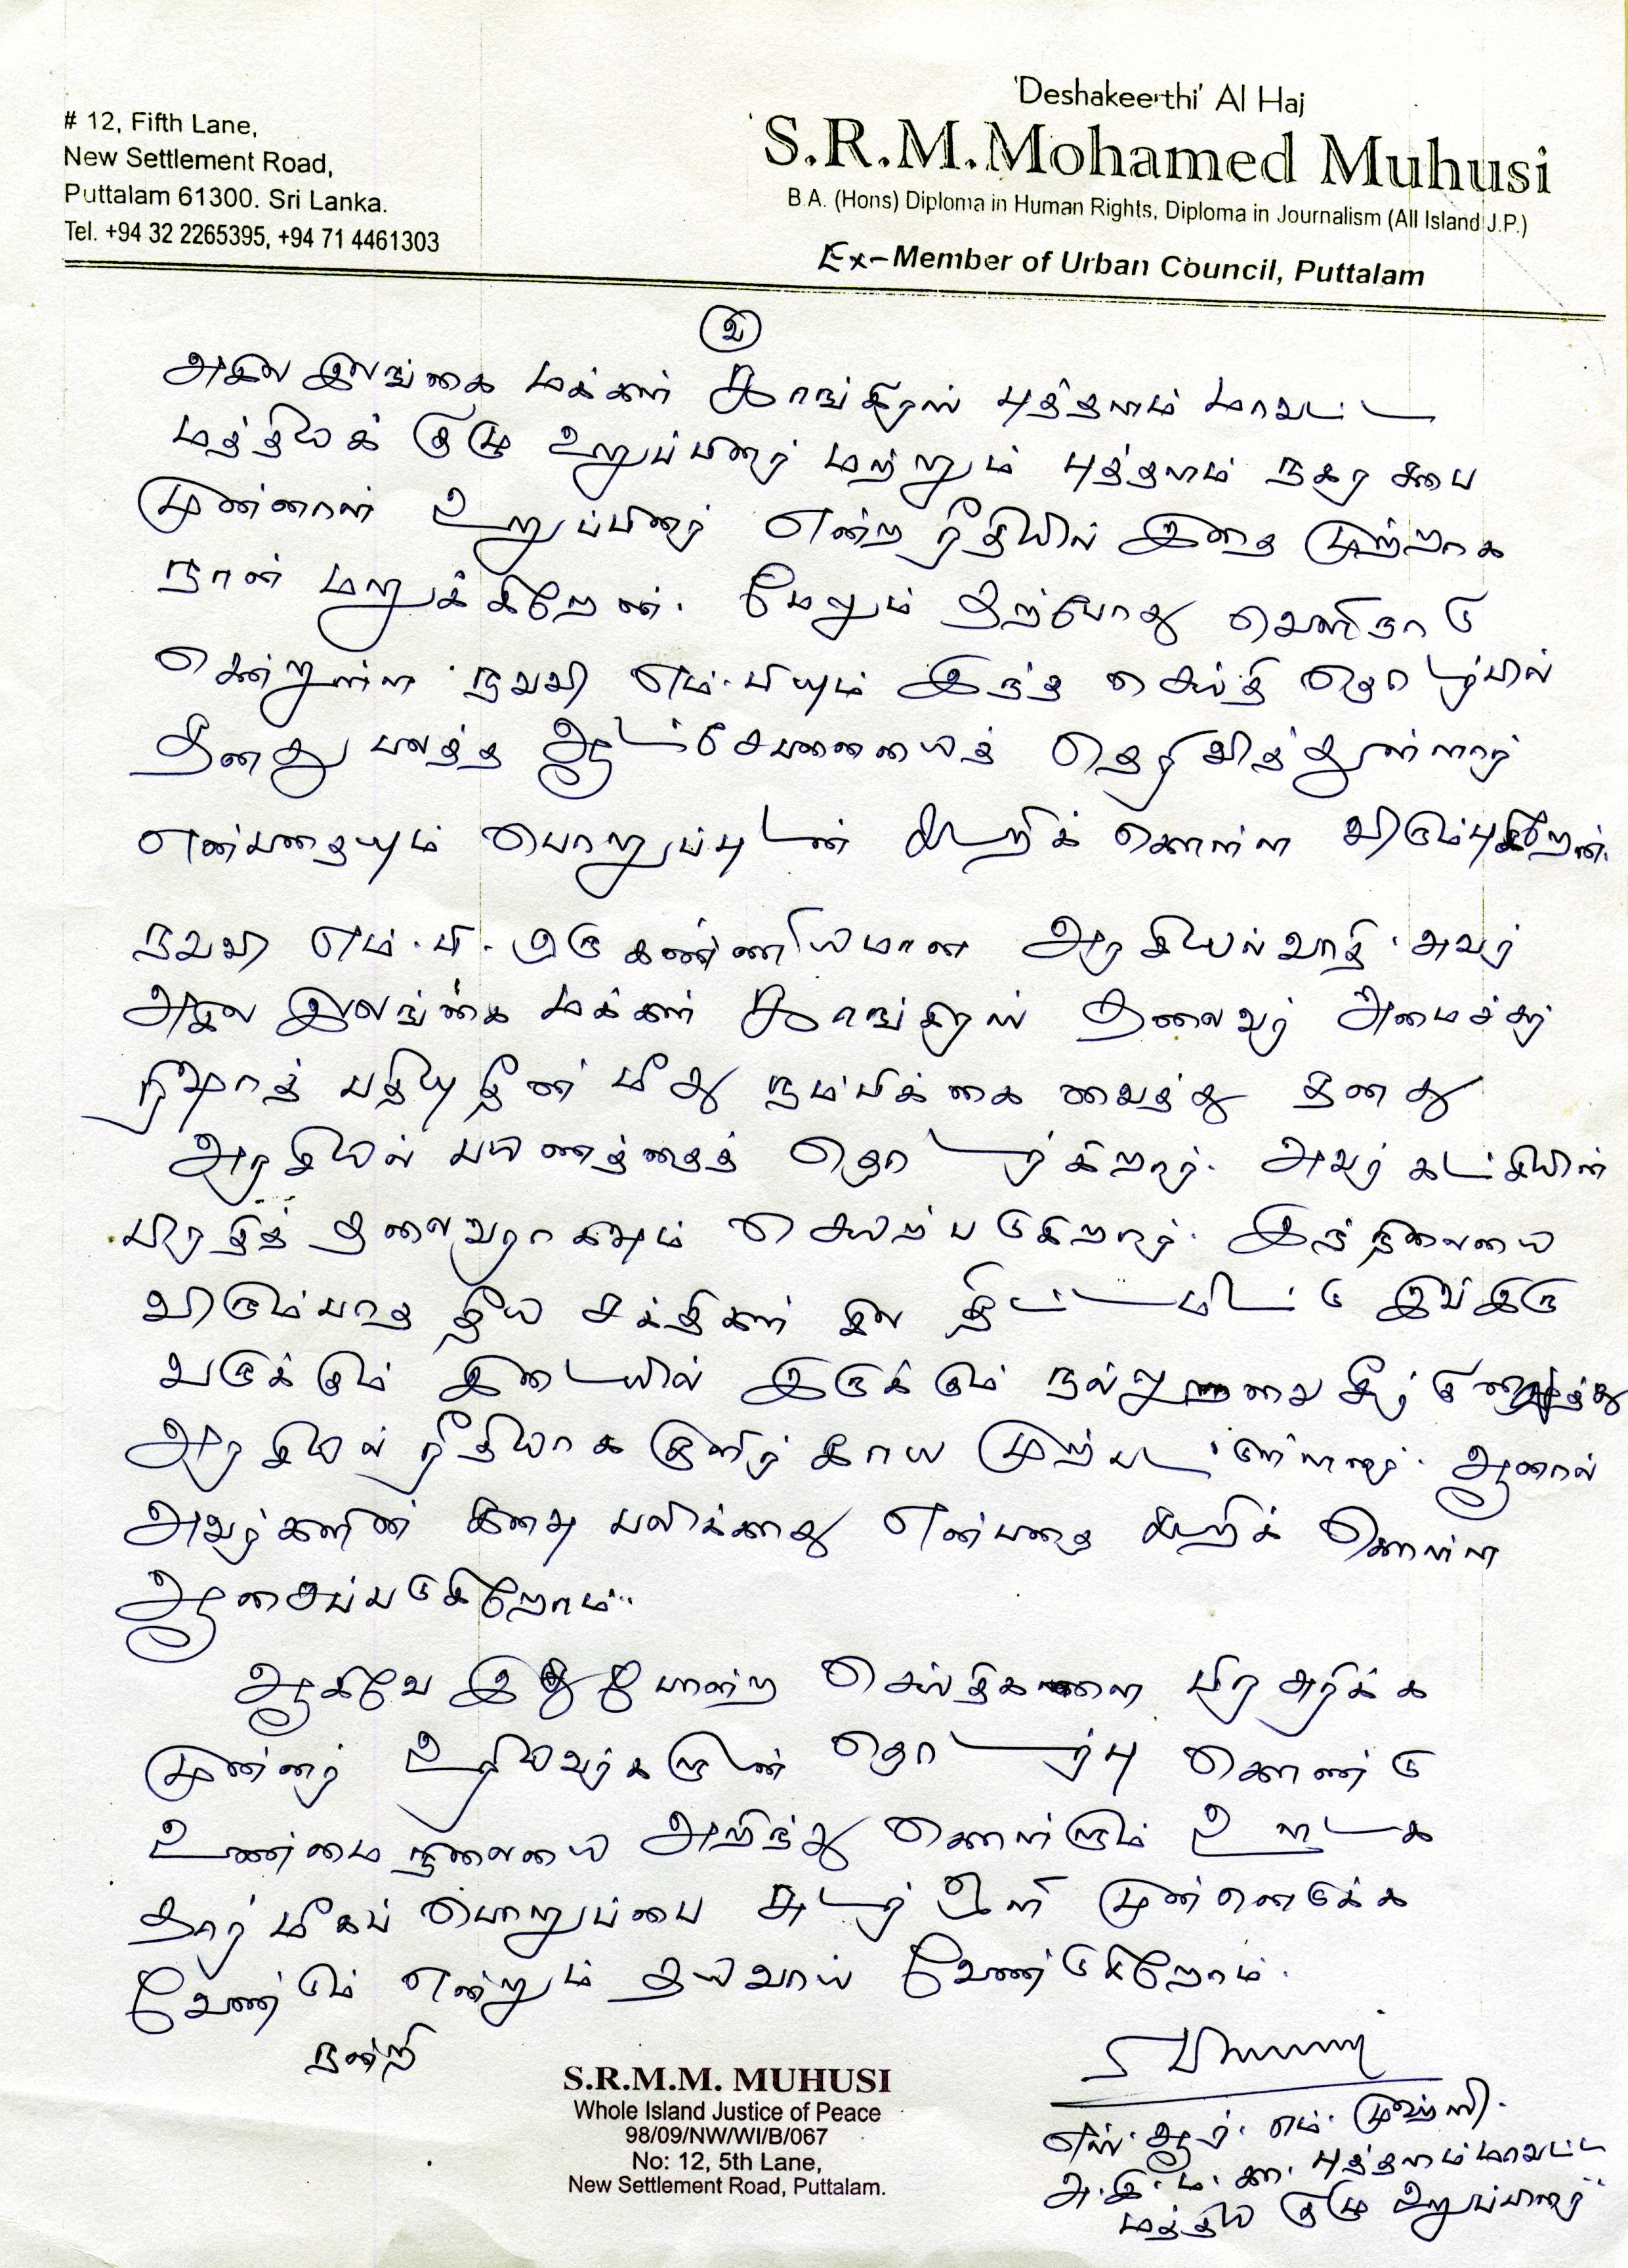 # 12, Fifth Lane,
New Settlement Road,
Puttalam 61300. Sri Lanka.
Tel. +94 32 2265395, +94 71 4461303
'Deshakeerthi' Al Haj
S.R.M.Mohamed Muhusi
B.A. (Hons) Diploma in Human Rights, Diploma in Journalism (All Island J.P.)
Ex-Member of Urban Council, Puttalam
2
அகில இலங்கை மக்கள் காங்கிரஸ் புத்தளம் மாவட்ட
மத்தியக் குழு உறுப்பினர் மற்றும் புத்தளம் நகர சபை
முன்னாள் உறுப்பினர் என்ற ரீதியில் இதை முற்றாக
நான் மறுக்கிறேன். மேலும் தற்போது வெளிநாடு
சென்றுள்ள நவவி எம்.பியும் இந்த செய்தி தொடர்பில்
தனது பலத்த ஆட்சேபனையைத் தெரிவித்துள்ளார்
என்பதையும் பொறுப்புடன் கூறிக் கொள்ள விரும்புகிறேன்.
நவவி எம்.பி. ஒரு கண்ணியமான அரசியல்வாதி. அவர்
அகில இலங்கை மக்கள் காங்கிரஸ் தலைவர் அமைச்சர்
ரிஷாத் பதியுதீன் மீது நம்பிக்கை வைத்து தனது
அரசியல் பயணத்தைத் தொடர்கிறார். அவர் கட்சியின்
பிரதித் தலைவராகவும் செயற்படுகிறார். இந்நிலையை
விரும்பாத தீய சக்திகள் சில திட்டமிட்டு இவ்இரு
வருக்கும் இடையில் இருக்கும் நல்லுறவை சீர்குலைத்து
அரசியல் ரீதியாக குளிர் காய முற்பட்டுள்ளனர். ஆனால்
அவர்களின் கனவு பலிக்காது என்பதை கூறிக் கொள்ள
ஆசைப்படுகிறோம்.
ஆகவே இது போன்ற செய்திகளை பிரசுரிக்க
முன்னர் உரியவர்களுடன் தொடர்பு கொண்டு
உண்மை நிலையை அறிந்து கொள்ளும் ஊடக
தார்மீகப் பொறுப்பை சுடர் ஒளி முன்னெடுக்க
வேண்டும் என்றும் தயவாய் வேண்டுகிறோம்.
நன்றி
S.R.M.M. MUHUSI
Whole Island Justice of Peace
98/09/NW/WI/B/067
No: 12, 5th Lane,
New Settlement Road, Puttalam.
எஸ்.ஆர்.எம்.முஹ்ஸி.
அ.இ.ம.கா. புத்தளம் மாவட்ட
மத்திய குழு உறுப்பினர்